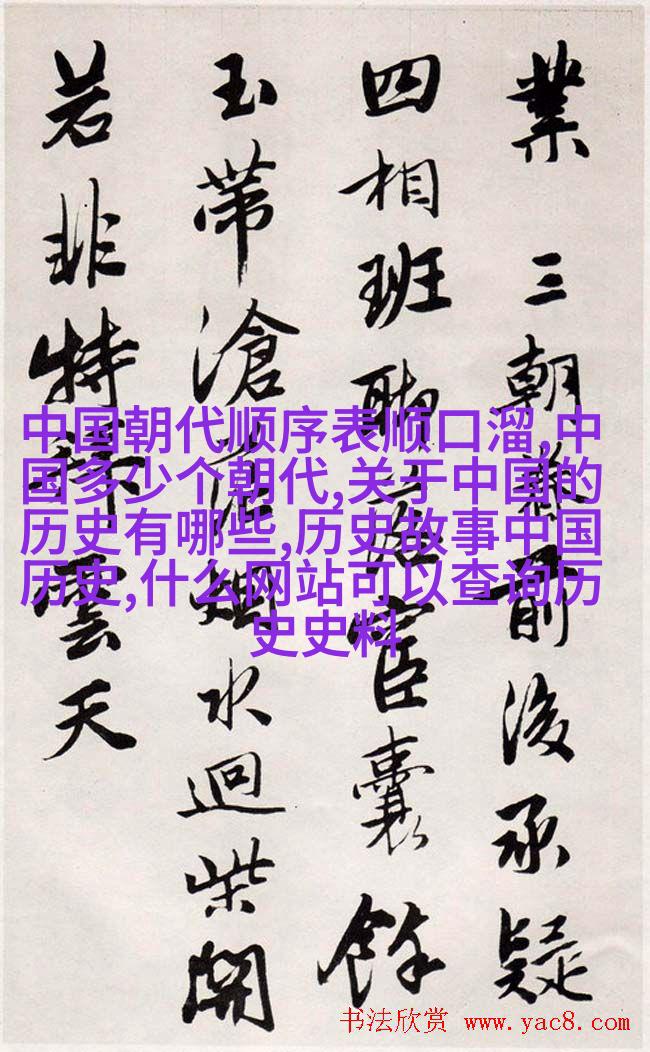 業 三朝前後承疑
四相班聯宦囊餘
玉帶滄烟水迴柴開
若非特雲天
中国朝代顺序表顺口溜,中
国多少个朝代,关于中国的
历史有哪些,历史故事中国
历史,什么网站可以查询历
史史料
书法欣赏 www.yac8.com